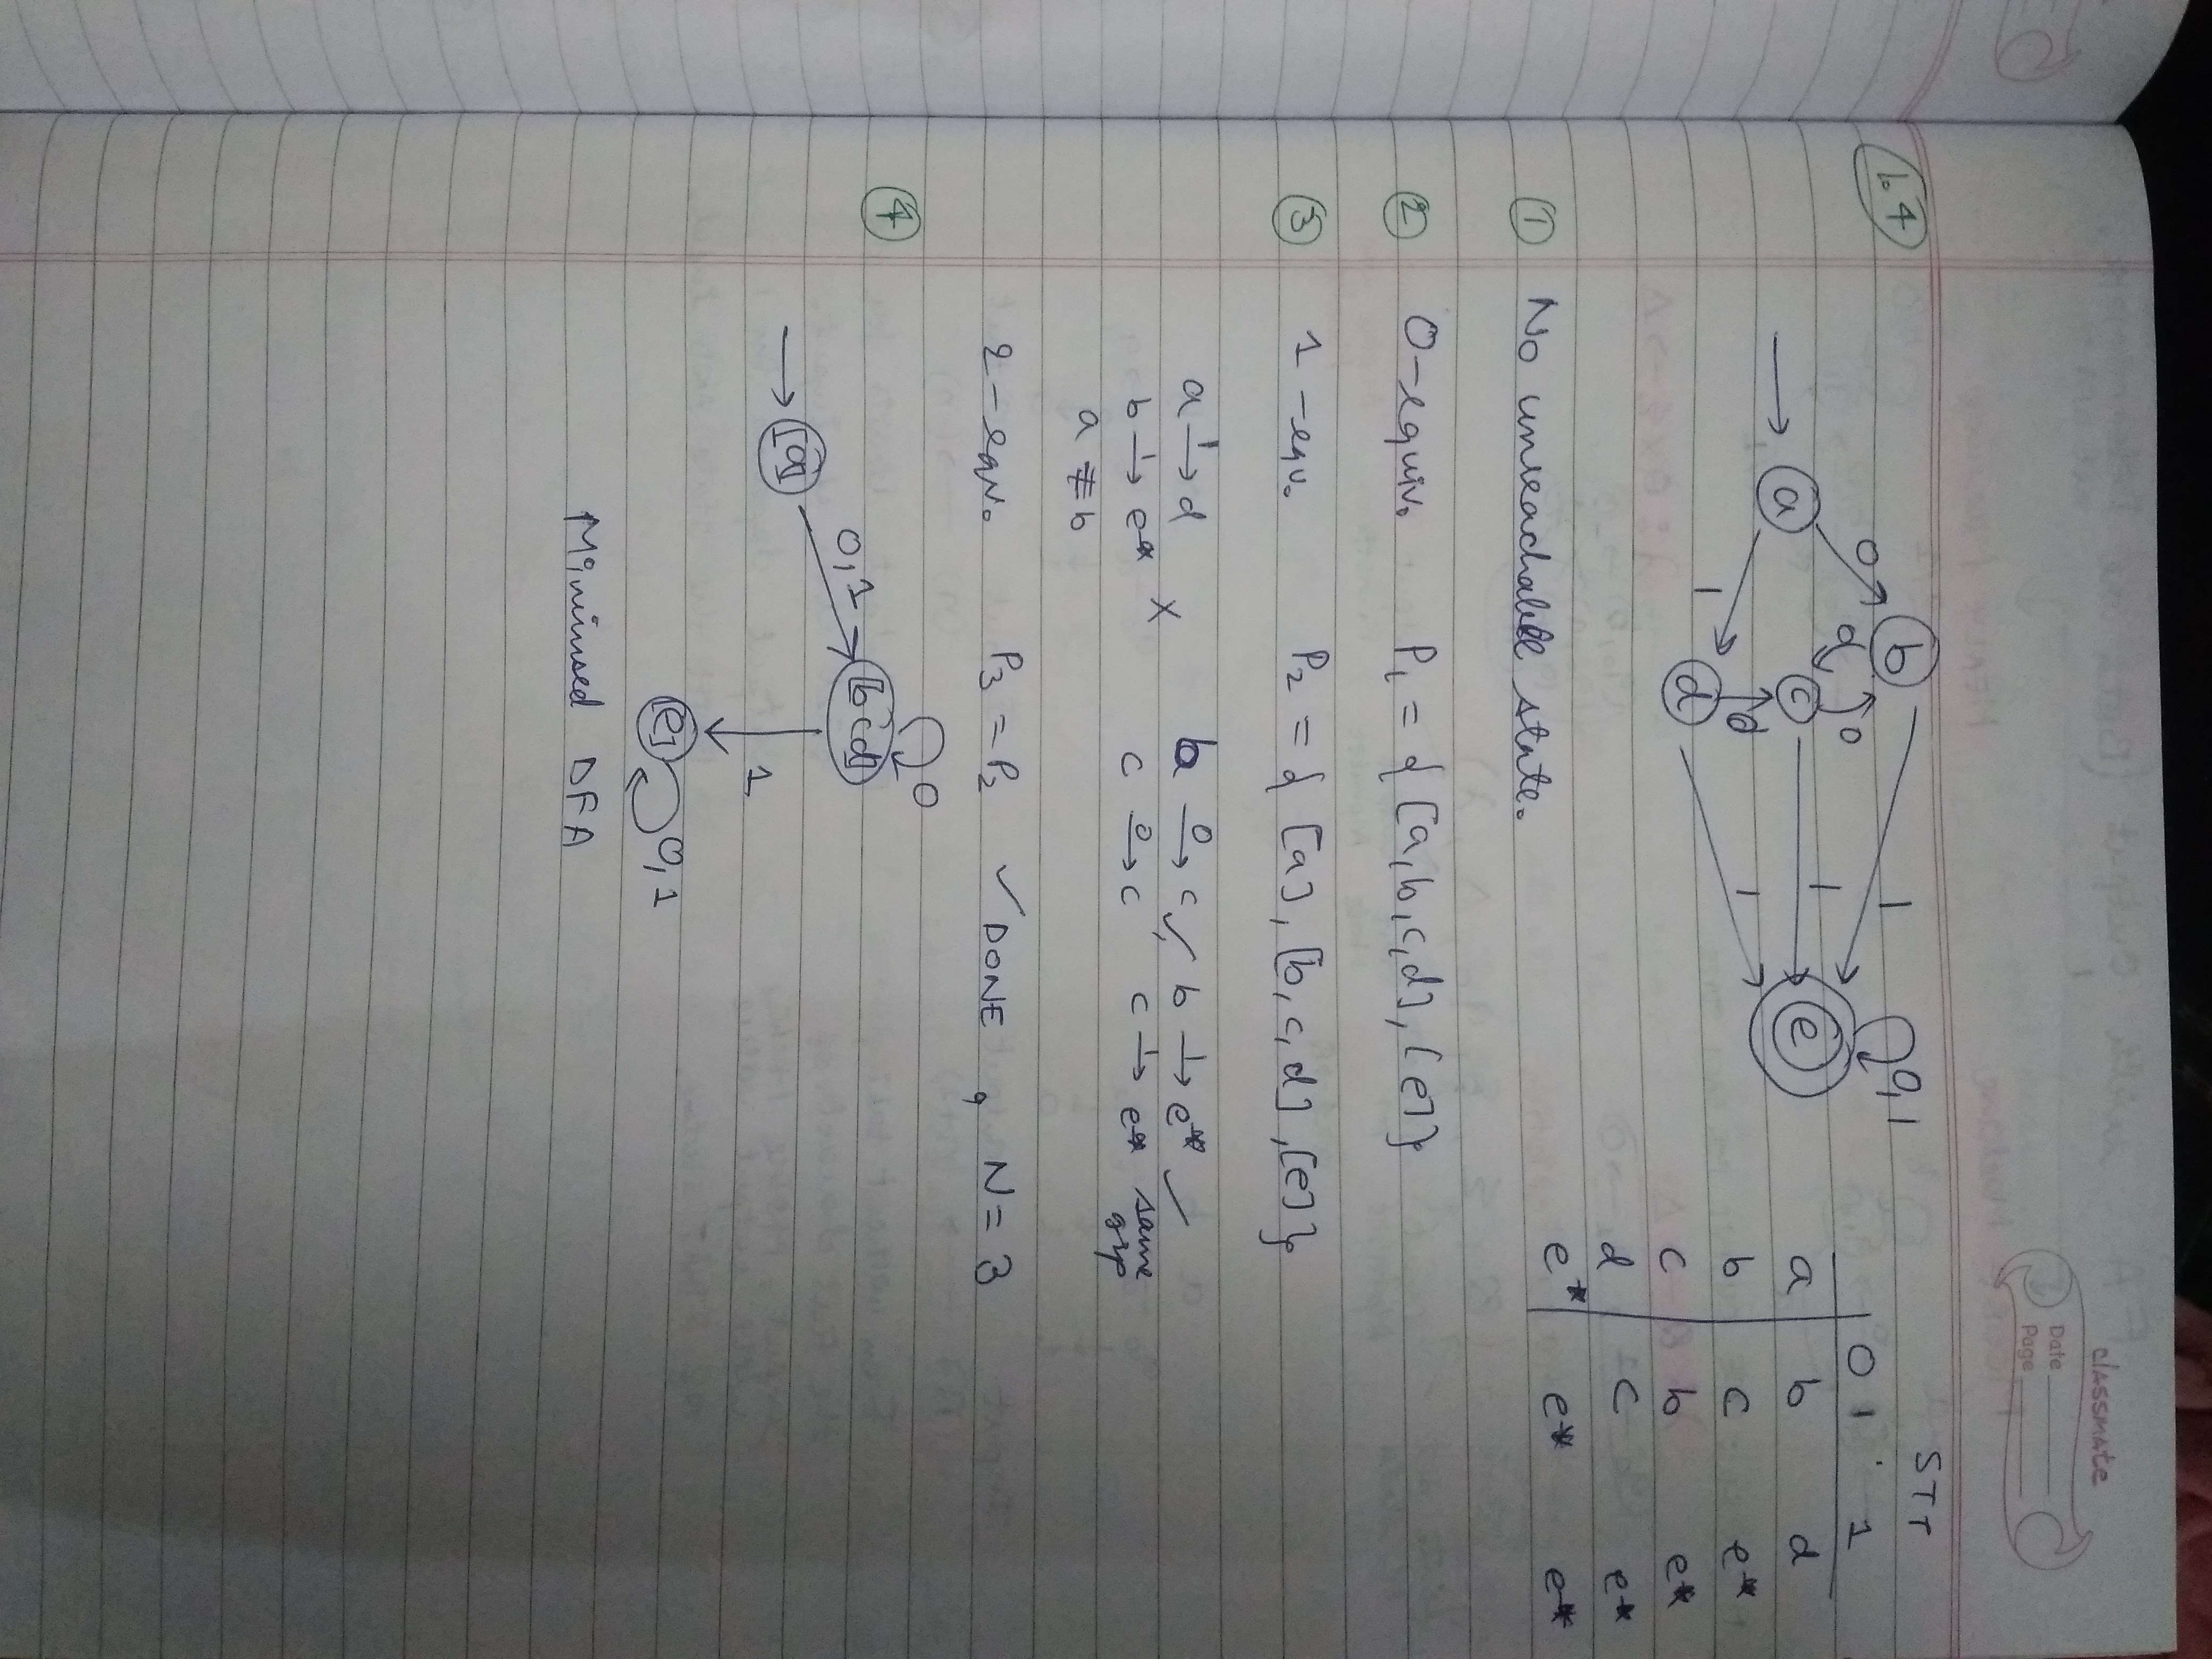 classmate
Date
Page
b.4
STT
0 1
a b d
b c e*
c b e*
d c e*
e* e* e*
a
b
c
d
e
0
1
0
0
0
1
1
1
0,1
① No unreachable state.
② 0-equiv. P₁ = { [a,b,c,d], [e] }
③ 1-eqv. P₂ = { [a], [b,c,d], [e] }
a →1 d b →0 c ✓, b →1 e* ✓
b →1 e* × c →0 c c →1 e* same grp
a ≠ b
2-eqv. P₃ = P₂ ✓ DONE, N = 3
④
[a]
0,1
[bcd]
0
1
[e]
0,1
Minimised DFA